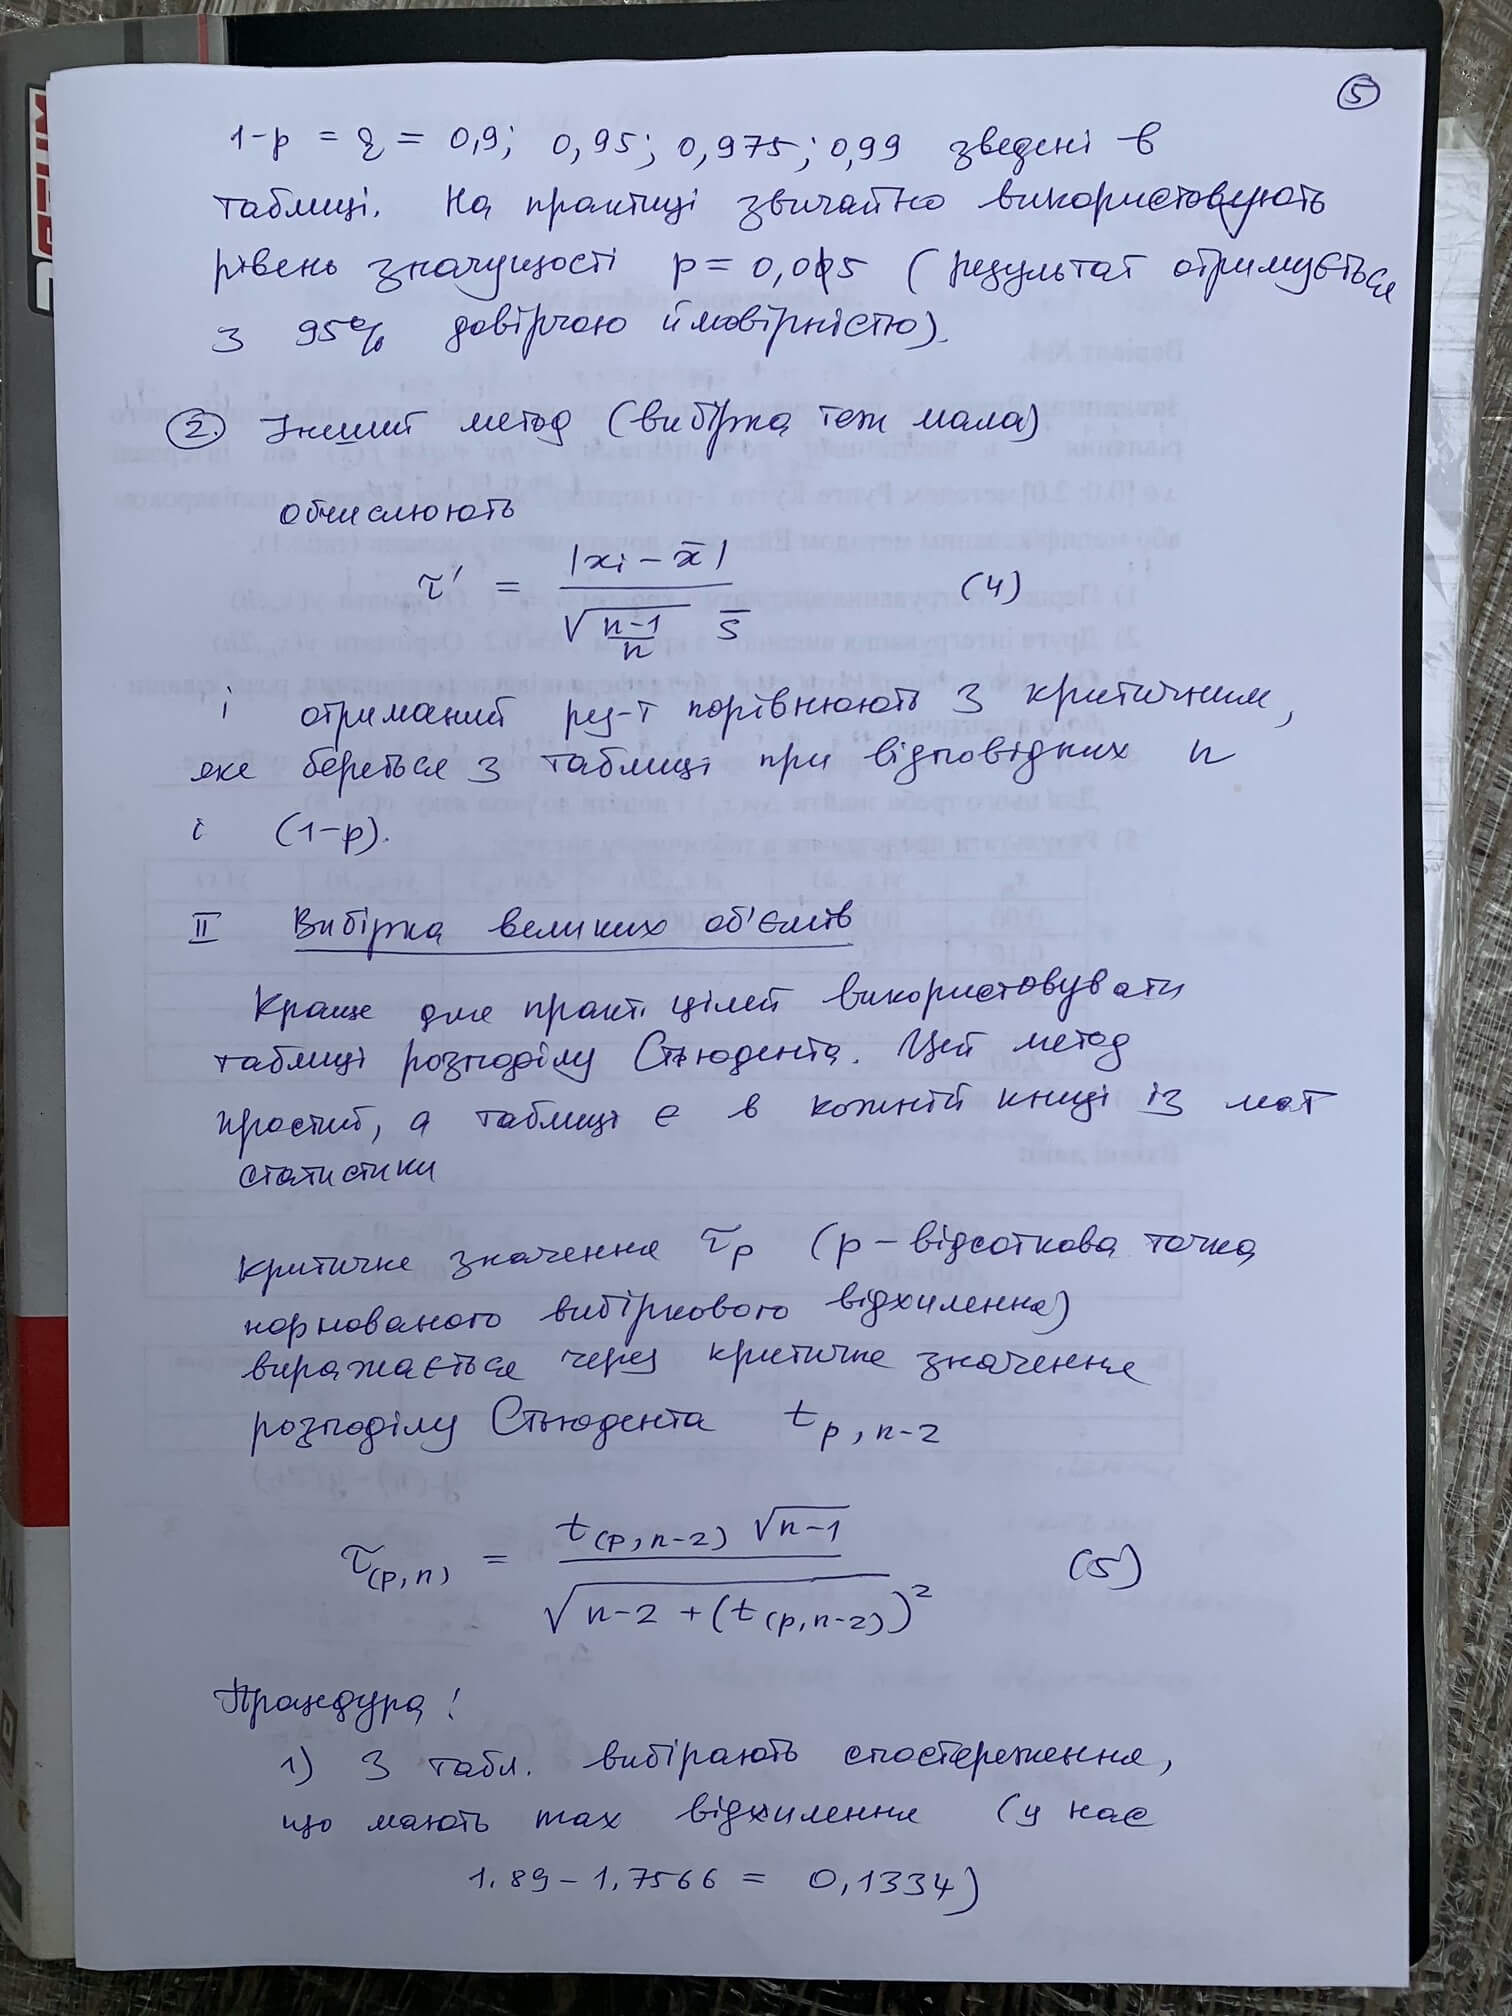 5
1-p = q = 0,9; 0,95; 0,975; 0,99 зведені в
таблиці. На практиці звичайно використовують
рівень значущості p = 0,05 (результат отримується
з 95% довірчою ймовірністю).
2. Інший метод (вибірка теж мала)
обчислюють
τ' = |xi - x̄| / √((n-1)/n) s̄ (4)
і отриманий рез-т порівнюють з критичним,
яке береться з таблиці при відповідних n
і (1-p).
II Вибірка великих об'ємів
Краще для практ. цілей використовувати
таблиці розподілу Стьюдента. Цей метод
простий, а таблиці є в кожній книзі із мат
статистики
критичне значення τp (p - відсоткова точка
нормованого вибіркового відхилення)
виражається через критичне значення
розподілу Стьюдента t p, n-2
τ(p,n) = t(p,n-2) √(n-1) / √(n-2 + (t(p,n-2))²) (5)
Процедура!
1) З табл. вибірають спостереження,
що мають max відхилення (у нас
1.89 - 1,7566 = 0,1334)